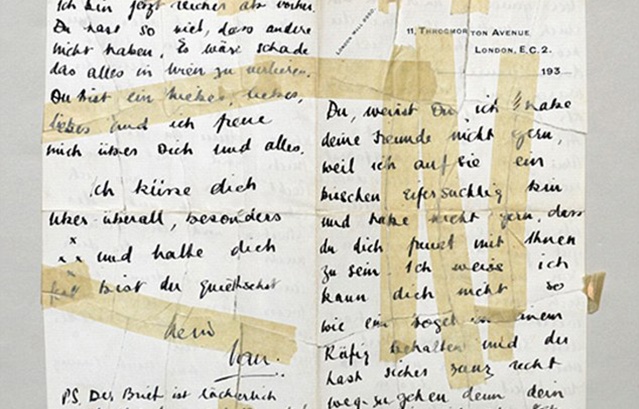 Ich bin jetzt reicher als vorher.
Du hast so viel, dass andere
nicht haben. Es wäre schade
das alles in Wien zu verlieren.
Du bist ein liebes, liebes,
liebes und ich freue
mich über Dich und alles.
Ich küsse dich
über überall, besonders
x
x x und halte dich
bist du
dein
PS. Der Brief ist lächerlich
11, THROGMORTON AVENUE
LONDON, E.C.2.
193
LONDON WALL
Du, weisst Du, ich habe
deine Freunde nicht gern,
weil ich auf Sie ein
bischen eifersuchtig bin
und habe nicht gern, dass
du dich freust mit Ihnen
zu sein. Ich weiss ich
kann dich nicht so
wie ein Vogel in einem
Käfig behalten und du
hast sicher ganz recht
weg zu gehen denn dein